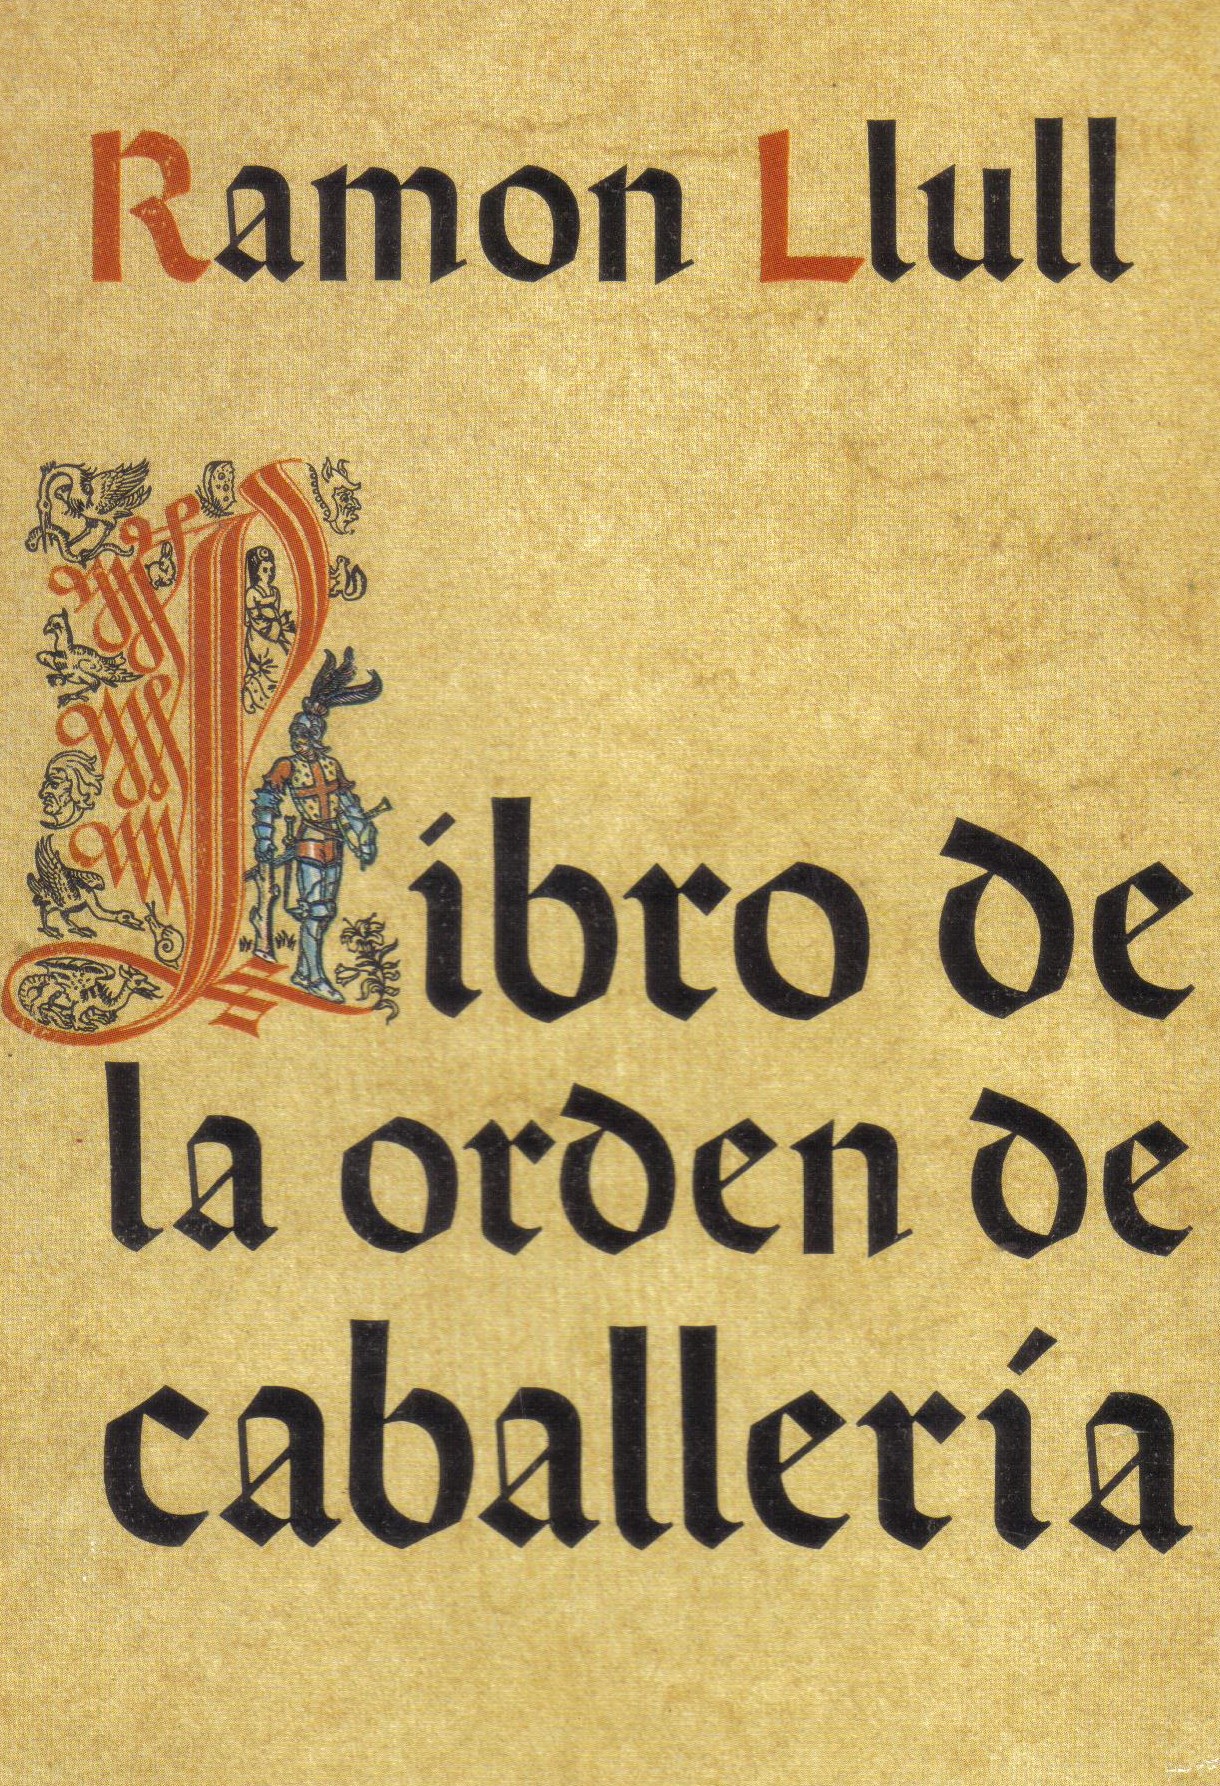 Ramon Llull
Libro de
la orden de
caballería